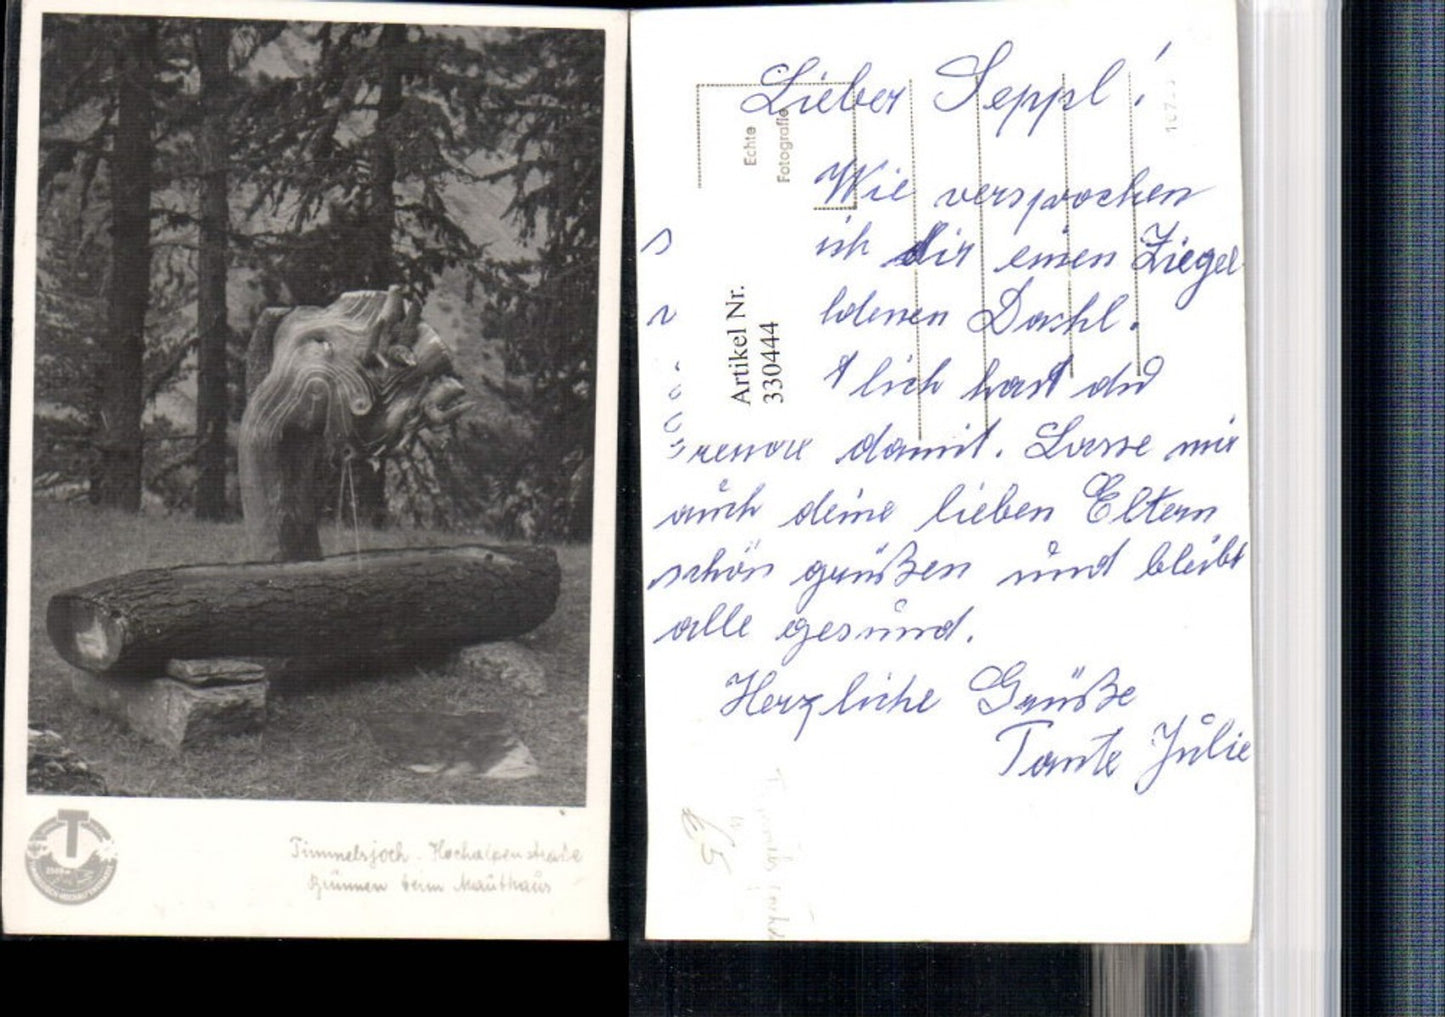 Timmelsjoch - Hochalpenstraße
Brunnen beim Mauthaus
T
Lieber Seppl!
Echte
Fotografie
Wie versprochen
ich dir einen Ziegel
ldenen Dachl.
lich hast du
Artikel Nr.
330444
damit. Lasse mir
auch deine lieben Eltern
schön grüßen und bleibt
alle gesund.
Herzliche Grüße
Tante Julie